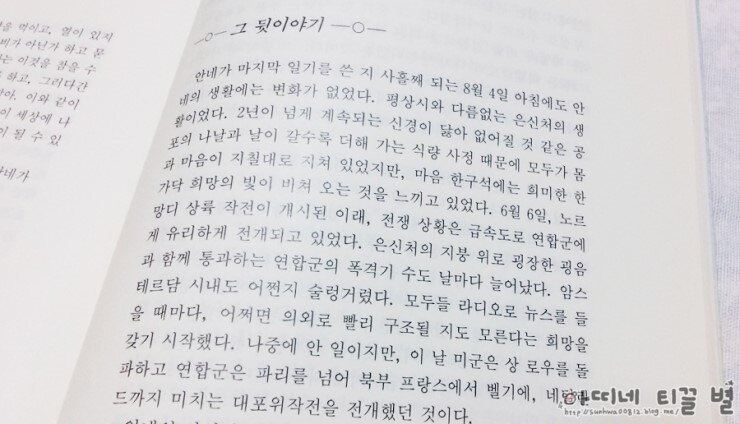 을 먹이고, 열이 있지
비가 아닌가 하고 묻
는 이것을 참을 수
하고, 그러다간
아. 이와 같이
이 세상에 나
이 될 수 있
안네가
그 뒷이야기
안네가 마지막 일기를 쓴 지 사흘째 되는 8월 4일 아침에도 안
네의 생활에는 변화가 없었다. 평상시와 다름없는 은신처의 생
활이었다. 2년이 넘게 계속되는 신경이 닳아 없어질 것 같은 공
포의 나날과 날이 갈수록 더해 가는 식량 사정 때문에 모두가 몸
과 마음이 지칠대로 지쳐 있었지만, 마음 한구석에는 희미한 한
가닥 희망의 빛이 비쳐 오는 것을 느끼고 있었다. 6월 6일, 노르
망디 상륙 작전이 개시된 이래, 전쟁 상황은 급속도로 연합군에
게 유리하게 전개되고 있었다. 은신처의 지붕 위로 굉장한 굉음
과 함께 통과하는 연합군의 폭격기 수도 날마다 늘어났다. 암스
테르담 시내도 어쩐지 술렁거렸다. 모두들 라디오로 뉴스를 들
을 때마다, 어쩌면 의외로 빨리 구조될 지도 모른다는 희망을
갖기 시작했다. 나중에 안 일이지만, 이 날 미군은 상 로우를 돌
파하고 연합군은 파리를 넘어 북부 프랑스에서 벨기에, 네덜란
드까지 미치는 대포위작전을 전개했던 것이다.
띠네 티끌 별
http://sunhwa00812.blog.me/